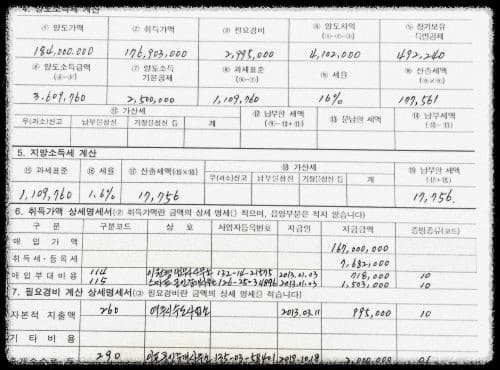 4. 양도소득세 계산
① 양도가액 ② 취득가액 ③ 필요경비 ④ 양도차익 (①-②-③) ⑤ 장기보유 특별공제
184,000,000 176,903,000 2,995,000 4,102,000 492,240
⑥ 양도소득금액 (④-⑤) ⑦ 양도소득 기본공제 ⑧ 과세표준 ⑨ 세율 ⑩ 산출세액
3,609,760 2,500,000 1,109,760 16% 177,561
⑪ 가산세 ⑫ 납부할 세액 ⑬ 분납할 세액 ⑭ 납부세액
무(과소)신고 납부불성실 기장불성실 등 계
5. 지방소득세 계산
⑮ 과세표준 ⑯ 세율 ⑰ 산출세액(⑮×⑯) ⑱ 가산세 ⑲ 납부할 세액 (⑰+⑱)
무(과소)신고 납부불성실 기장불성실 등 계
1,109,760 1.6% 17,756 17,756
6. 취득가액 상세명세서(② 취득가액란 금액의 상세 명세를 적으며, 음영부분은 적지 않습니다)
구 분 구분코드 상 호 사업자등록번호 지급일 지급금액 증빙종류(코드)
매 입 가 액 167,000,000
취득세·등록세 7,682,000
매입부대비용 114 132-14-21575 2013.01.03 718,000 10
115 2013.01.03 1,503,000 10
7. 필요경비 계산 상세명세서(③ 필요경비란 금액의 상세 명세를 적습니다)
자본적 지출액 260 2013.03.11 995,000 10
기 타 비 용
290 2,000,000